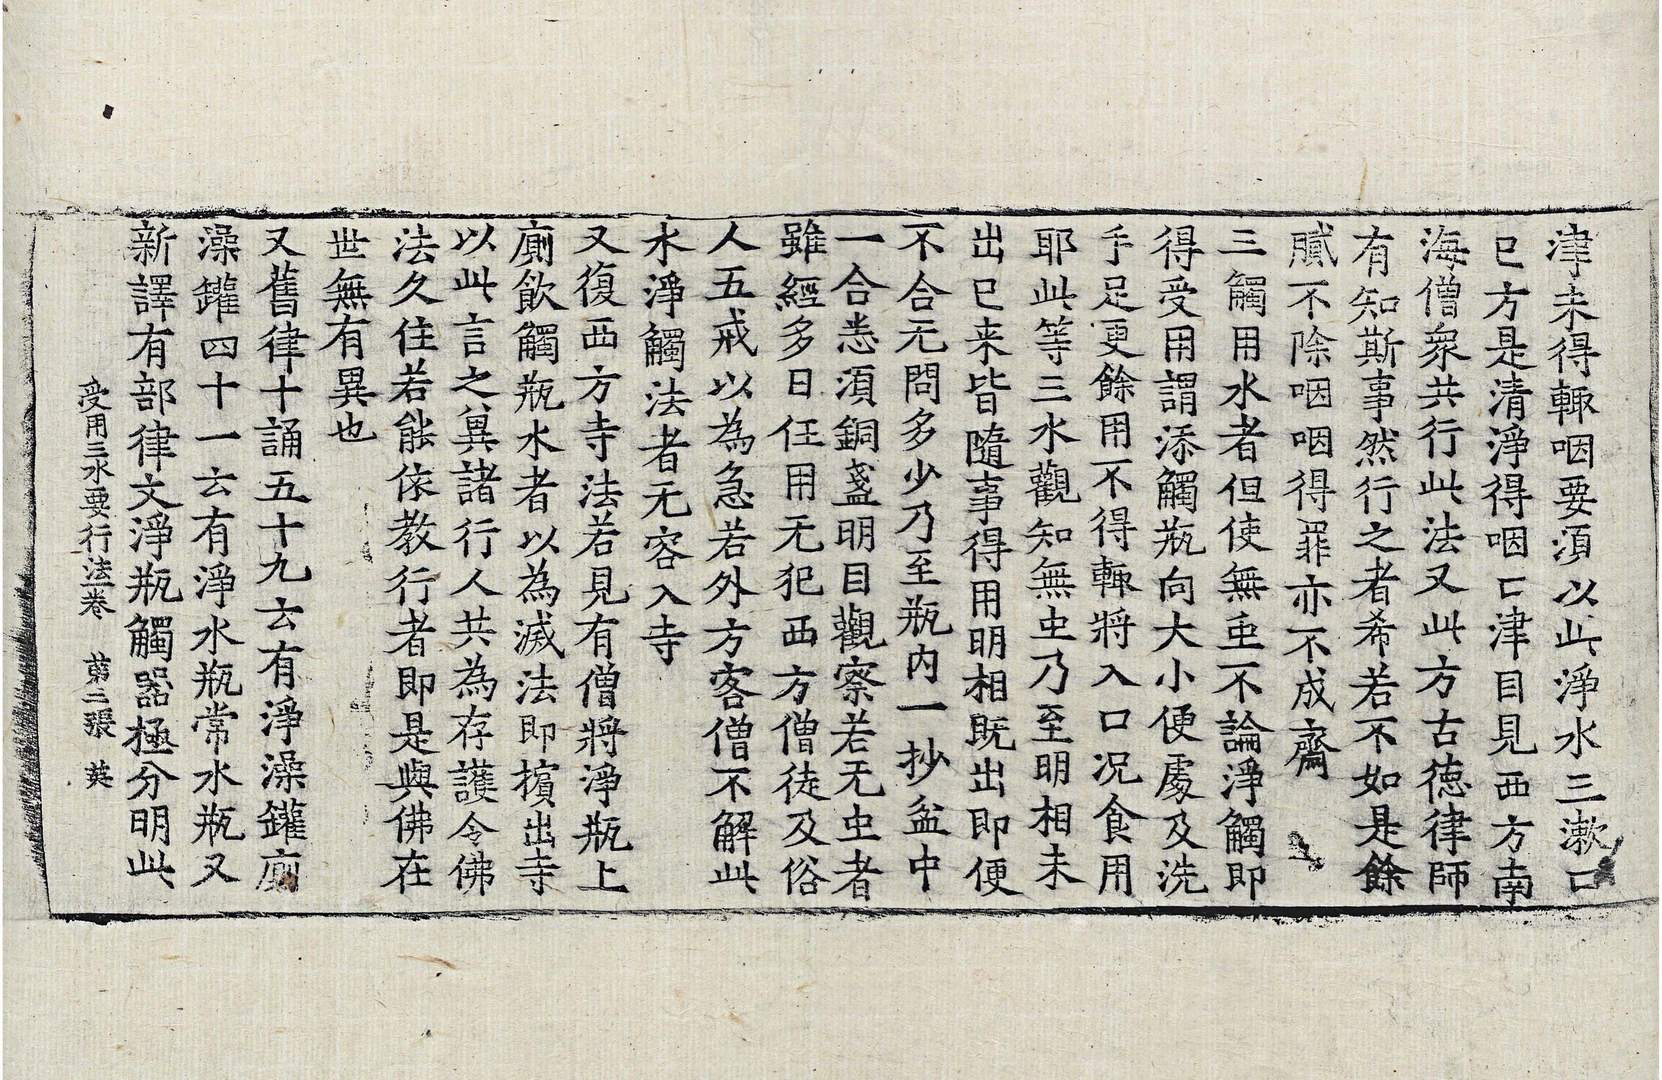 津未得輙咽要湏以此淨水三漱口
已方是清淨得咽亡津目見西方南
海僧衆共行此法又此方古德律師
有知斯事然行之者希若不如是餘
膩不除咽咽得罪亦不成齋
三觸用水者但使無虫不論淨觸即
得受用謂添觸瓶向大小便處及洗
手足更餘用不得輙將入口况食用
耶此等三水觀知無虫乃至明相未
出已来皆隨事得用明相既出即便
不合无問多少乃至瓶内一抄盆中
一合悉湏銅盞明目觀察若无虫者
雖經多日任用无犯西方僧徒及俗
人五戒以為急若外方客僧不解此
水淨觸法者无容入寺
又復西方寺法若見有僧將淨瓶上
廁飲觸瓶水者以為滅法即擯出寺
以此言之兾諸行人共為存護令佛
法久住若能依教行者即是與佛在
世無有異也
又舊律十誦五十九云有淨澡罐廁
澡罐四十一云有淨水瓶常水瓶又
新譯有部律文淨瓶觸器極分明此
受用三水要行法卷　苐二張　英